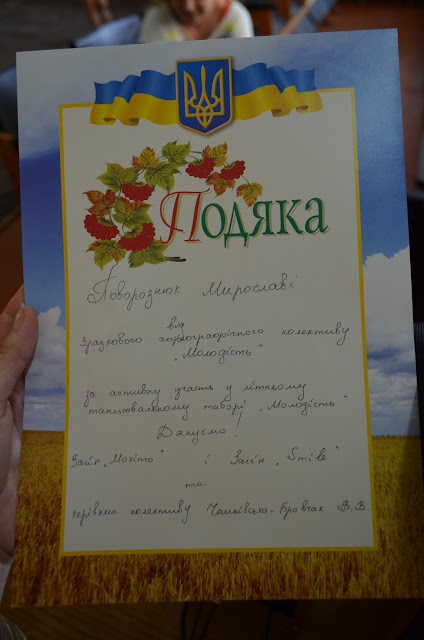 Подяка
Поворознюк Мирославі
від
зразкового хореографічного колективу
„Молодість"
за активну участь у літньому
танцювальному таборі „Молодість"
Дякуємо!
Загін „Мохіто" і Загін „Stile"
та
керівник колективу Чашківська-Бровчак В.В.